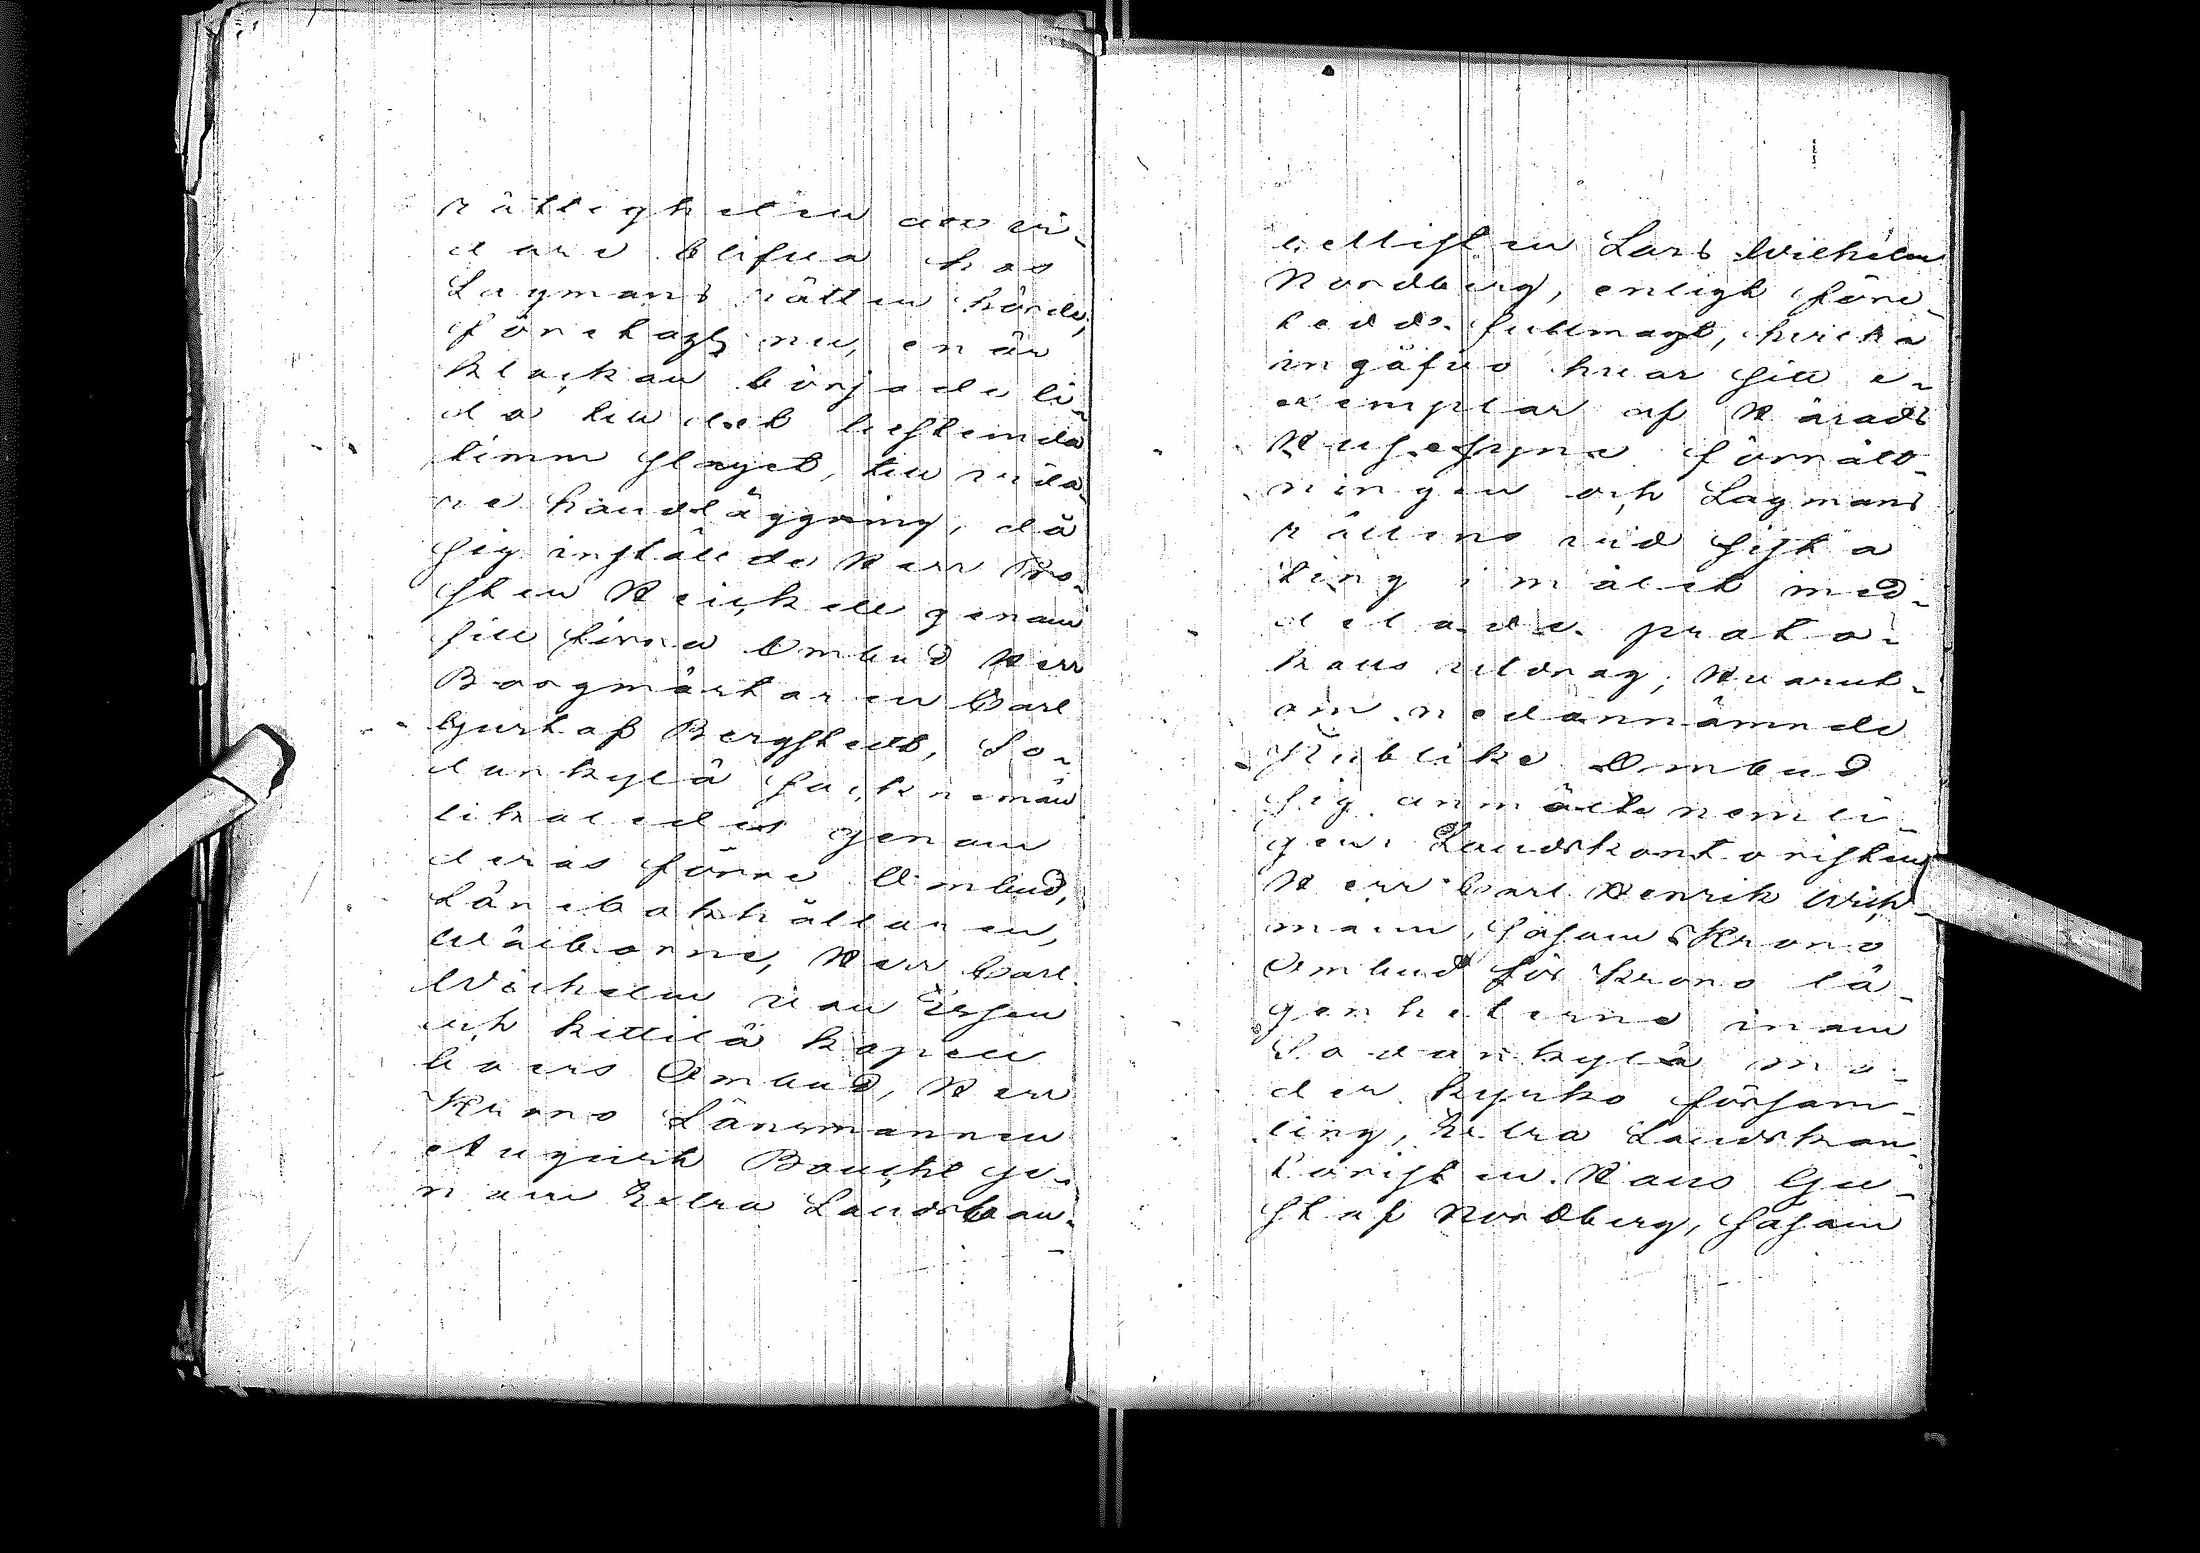 rättigheten att vi-
dare blifva hos
Lagmans rätten hörde,
företagts nu, enär
klockan började li-
da till det bestemda
timm slaget, till vida-
re handläggning, då
sig instälde Herr Pro-
sten Heickell genom
sitt förra Ombud Herr
Borgmästaren Carl
Gustaf Bergstedt, So-
dankylä Socknemän
likaledes genom
deras förre Ombud,
Länebokhållaren,
Wälborne, Herr Carl
Wilhelm von Essen
och Kittilä kapell
boers Ombud, Herr
Krono Länsmannen
August Boucht ge-
nom Extra Landskan-
cellisten Lars Wilhelm
Nordberg, enligt före-
tedde fullmagt, hvilka
ingåfvo hvar sitt e-
xemplar af Härads
Husesyns förrätt-
ningen och Lagmans
rättens vid sista
ting i målet med-
delade proto-
kolls utdrag, Hvarut-
om nedannämnde
Publike Ombud
sig anmälte nemli-
gen: Landskontoristen
Herr Carl Henrik Wich-
mann, såsom Krono
Ombud för Krono lä-
genheterne inom
Sodankylä mo-
der kyrko försam-
ling, Extra Landskon-
toristen Hans Gu-
staf Nordberg, såsom